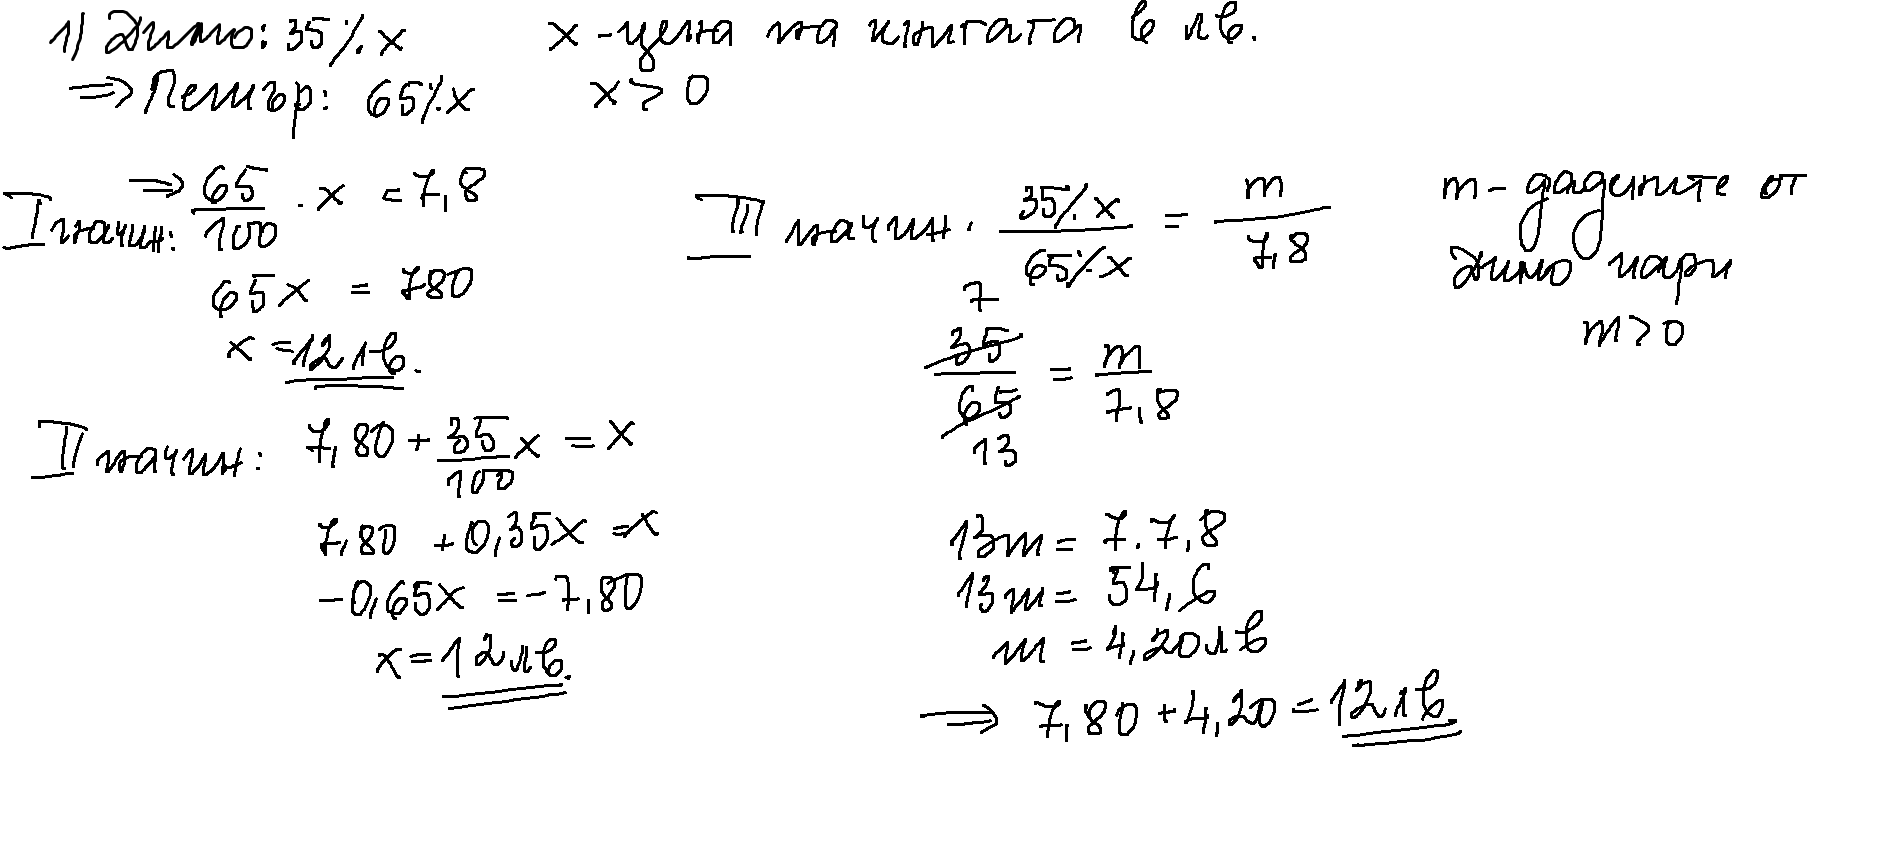 1) Димо: 35% x x - цена на книгата в лв.
⇒ Петър: 65% x x > 0
I начин: ⇒ 65/100 . x = 7,8
65x = 780
x = 12 лв.
II начин: 7,80 + 35/100 x = x
7,80 + 0,35x = x
-0,65x = -7,80
x = 12 лв.
III начин. 35% x / 65% x = m / 7,8
m - дадените от
Димо пари
m > 0
7
35/65 = m/7,8
13
13m = 7.7,8
13m = 54,6
m = 4,20 лв
⇒ 7,80 + 4,20 = 12 лв.